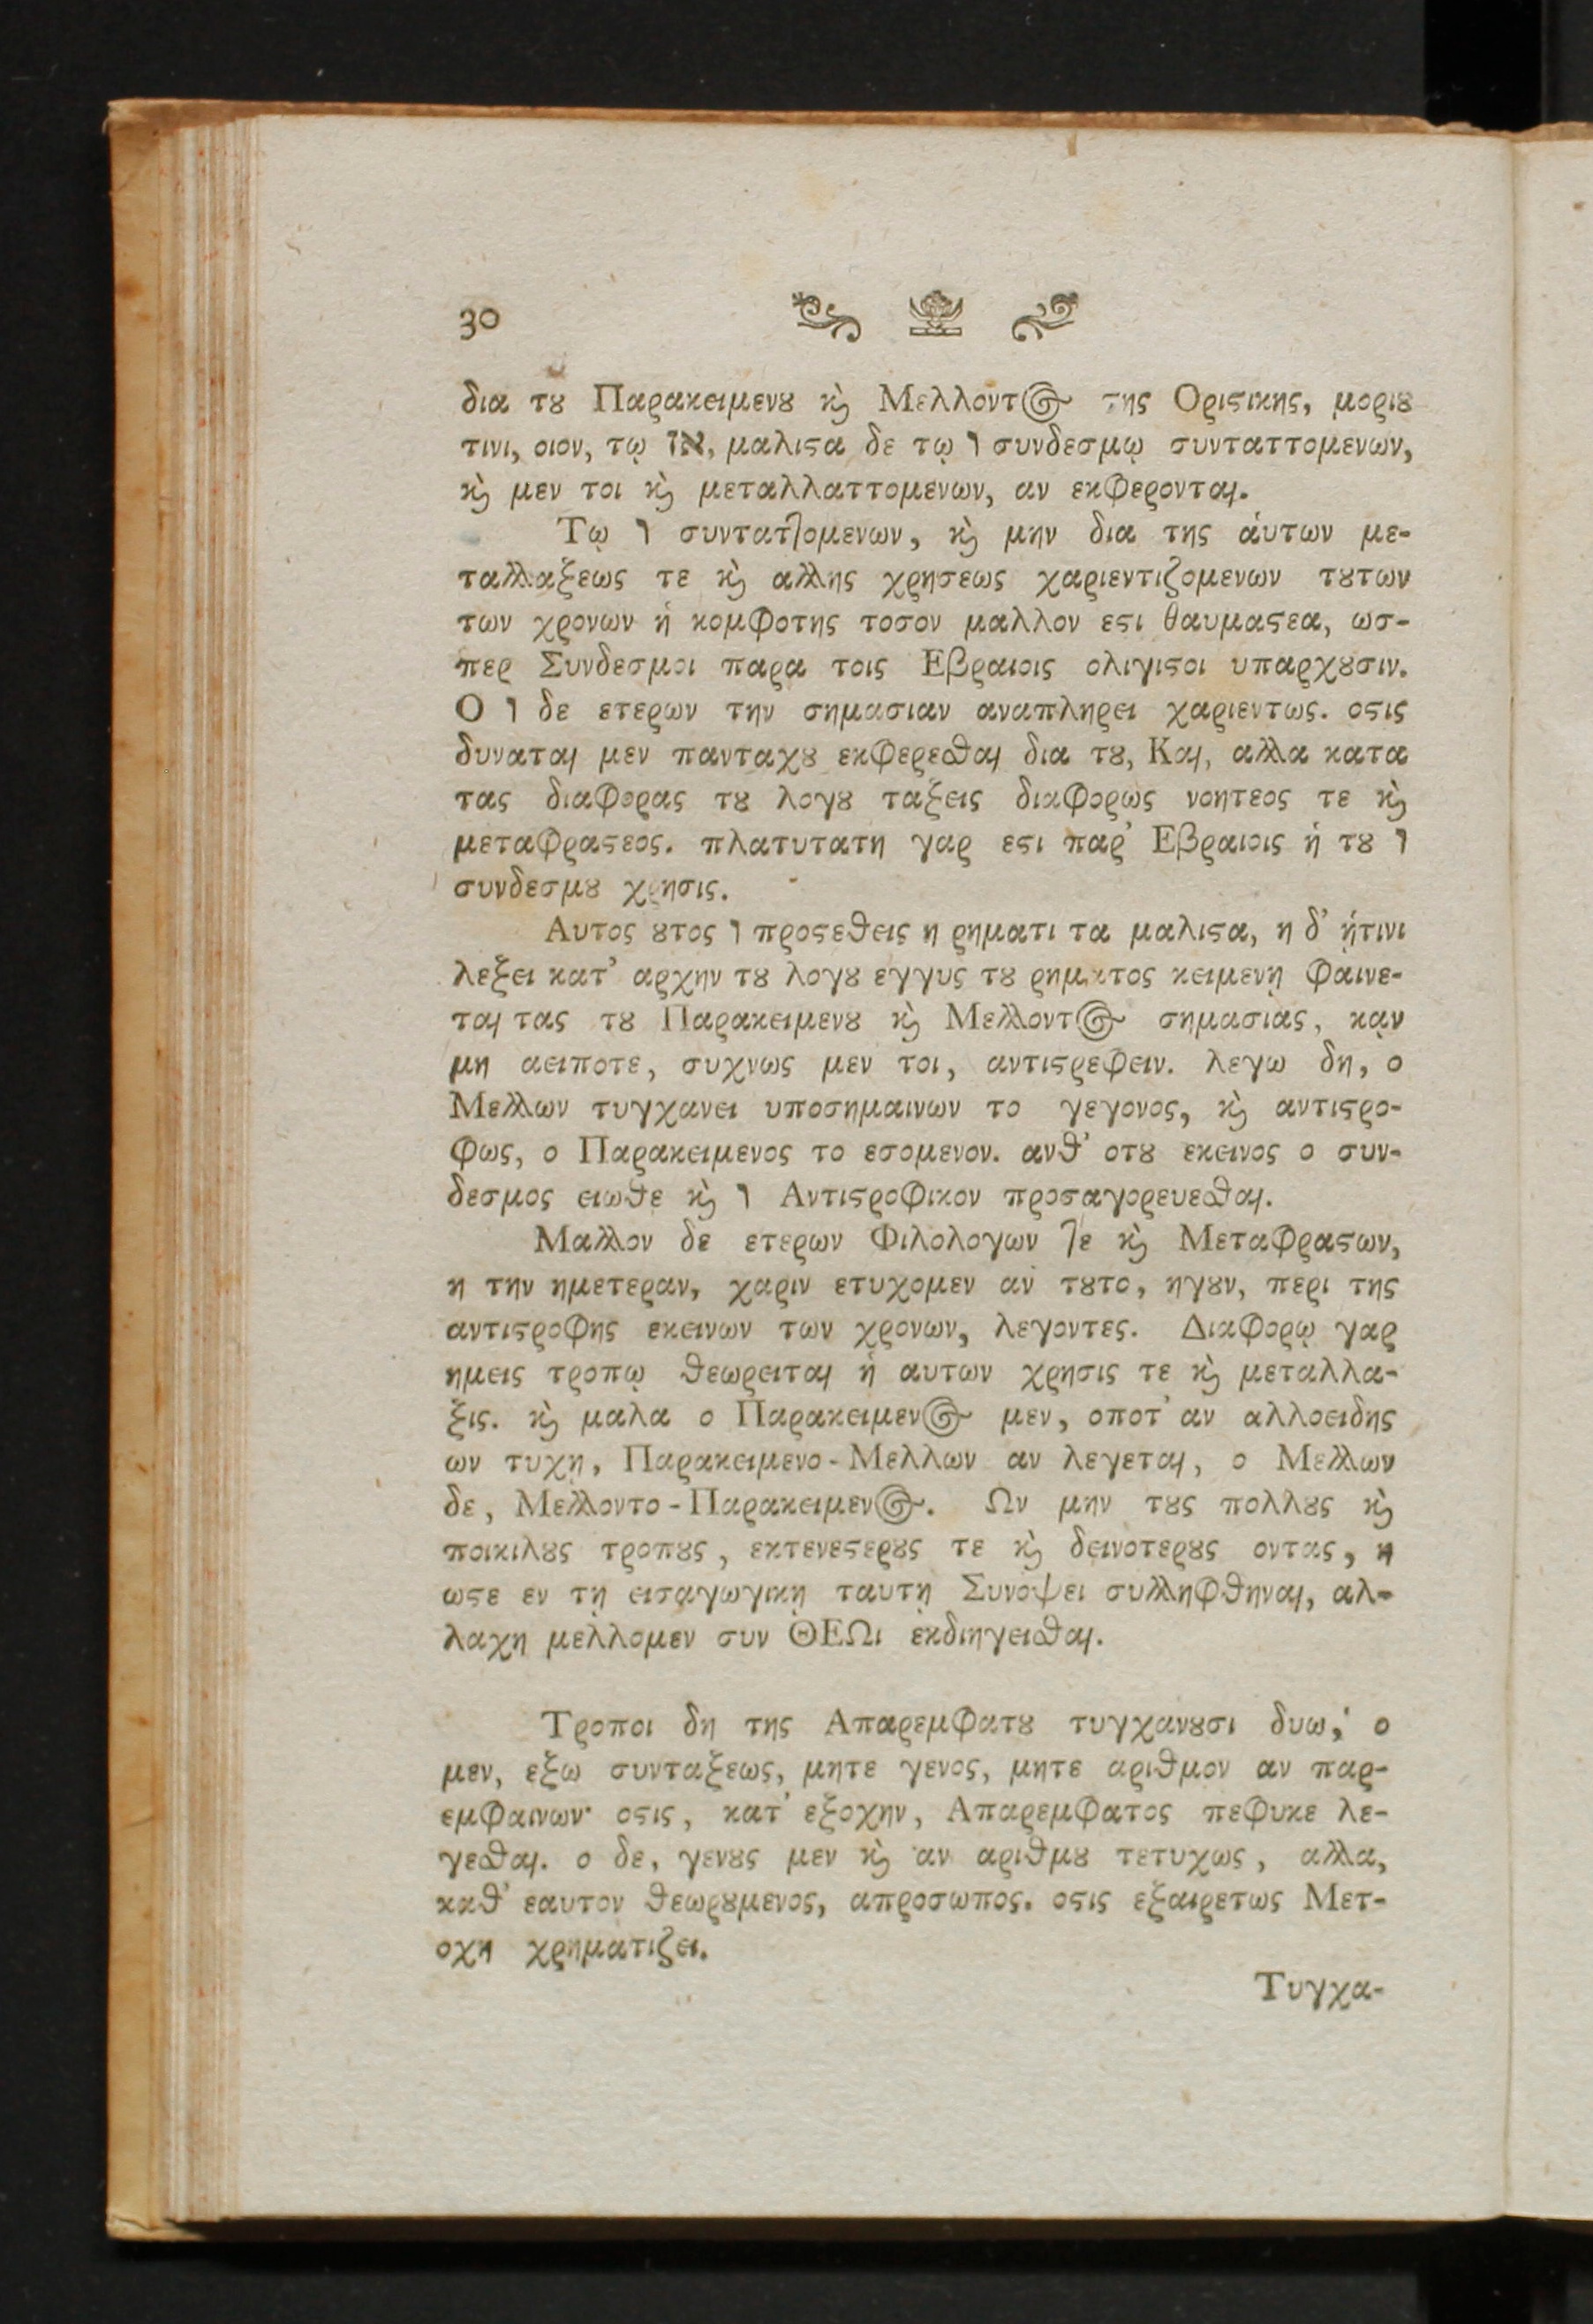 30
δια τȣ Παρακειμενȣ ϗ Μελλοντος της Οριϛικης, μοριȣ
τινι, οιον, τῳ אז, μαλιϛα δε τῳ ו συνδεσμῳ συνταττομενων,
ϗ μεν τοι ϗ μεταλλαττομενων, αν εκφερονται.
Τῳ ו συνταττομενων, ϗ μην δια της ἁυτων με-
ταλλαξεως τε ϗ αλλης χρησεως χαριεντιζομενων τȣτων
των χρονων ἡ κομφοτης τοσον μαλλον εϛι θαυμαϛεα, ωσ-
περ Συνδεσμοι παρα τοις Εβραιοις ολιγιϛοι υπαρχȣσιν.
Ο ו δε ετερων την σημασιαν αναπληρει χαριεντως. οϛις
δυναται μεν πανταχȣ εκφερεσθαι δια τȣ, Και, αλλα κατα
τας διαφορας τȣ λογȣ ταξεις διαφορως νοητεος τε ϗ
μεταφραϛεος. πλατυτατη γαρ εϛι παρ' Εβραιοις ἡ τȣ ו
συνδεσμȣ χρησις.
Αυτος ȣτος ו προϛεθεις η ρηματι τα μαλιϛα, η δ' ᾑτινι
λεξει κατ' αρχην τȣ λογȣ εγγυς τȣ ρηματος κειμενῃ φαινε-
ται τας τȣ Παρακειμενȣ ϗ Μελλοντος σημασιας, κᾳν
μη αειποτε, συχνως μεν τοι, αντιϛρεφειν. λεγω δη, ο
Μελλων τυγχανει υποσημαινων το γεγονος, ϗ αντιϛρο-
φως, ο Παρακειμενος το εσομενον. ανθ' οτȣ εκεινος ο συν-
δεσμος ειωθε ϗ ו Αντιϛροφικον προσαγορευεσθαι.
Μαλλον δε ετερων Φιλολογων τε ϗ Μεταφραϛων,
η την ημετεραν, χαριν ετυχομεν αν τȣτο, ηγȣν, περι της
αντιϛροφης εκεινων των χρονων, λεγοντες. Διαφορῳ γαρ
ημεις τροπῳ θεωρειται ἡ αυτων χρησις τε ϗ μεταλλα-
ξις. ϗ μαλα ο Παρακειμενος μεν, οποτ' αν αλλοειδης
ων τυχῃ, Παρακειμενο-Μελλων αν λεγεται, ο Μελλων
δε, Μελλοντο-Παρακειμενος. Ων μην τȣς πολλȣς ϗ
ποικιλȣς τροπȣς, εκτενεϛερȣς τε ϗ δεινοτερȣς οντας, η
ωϛε εν τῃ εισαγωγικῃ ταυτῃ Συνοψει συλληφθηναι, αλ-
λαχη μελλομεν συν ΘΕΩι εκδιηγεισθαι.
Τροποι δη της Απαρεμφατȣ τυγχανȣσι δυω, ο
μεν, εξω συνταξεως, μητε γενος, μητε αριθμον αν παρ-
εμφαινων· οϛις, κατ' εξοχην, Απαρεμφατος πεφυκε λε-
γεσθαι. ο δε, γενȣς μεν ϗ αν αριθμȣ τετυχως, αλλα,
καθ' εαυτον θεωρȣμενος, απροσωπος. οϛις εξαιρετως Μετ-
οχη χρηματιζει.
Τυγχα-